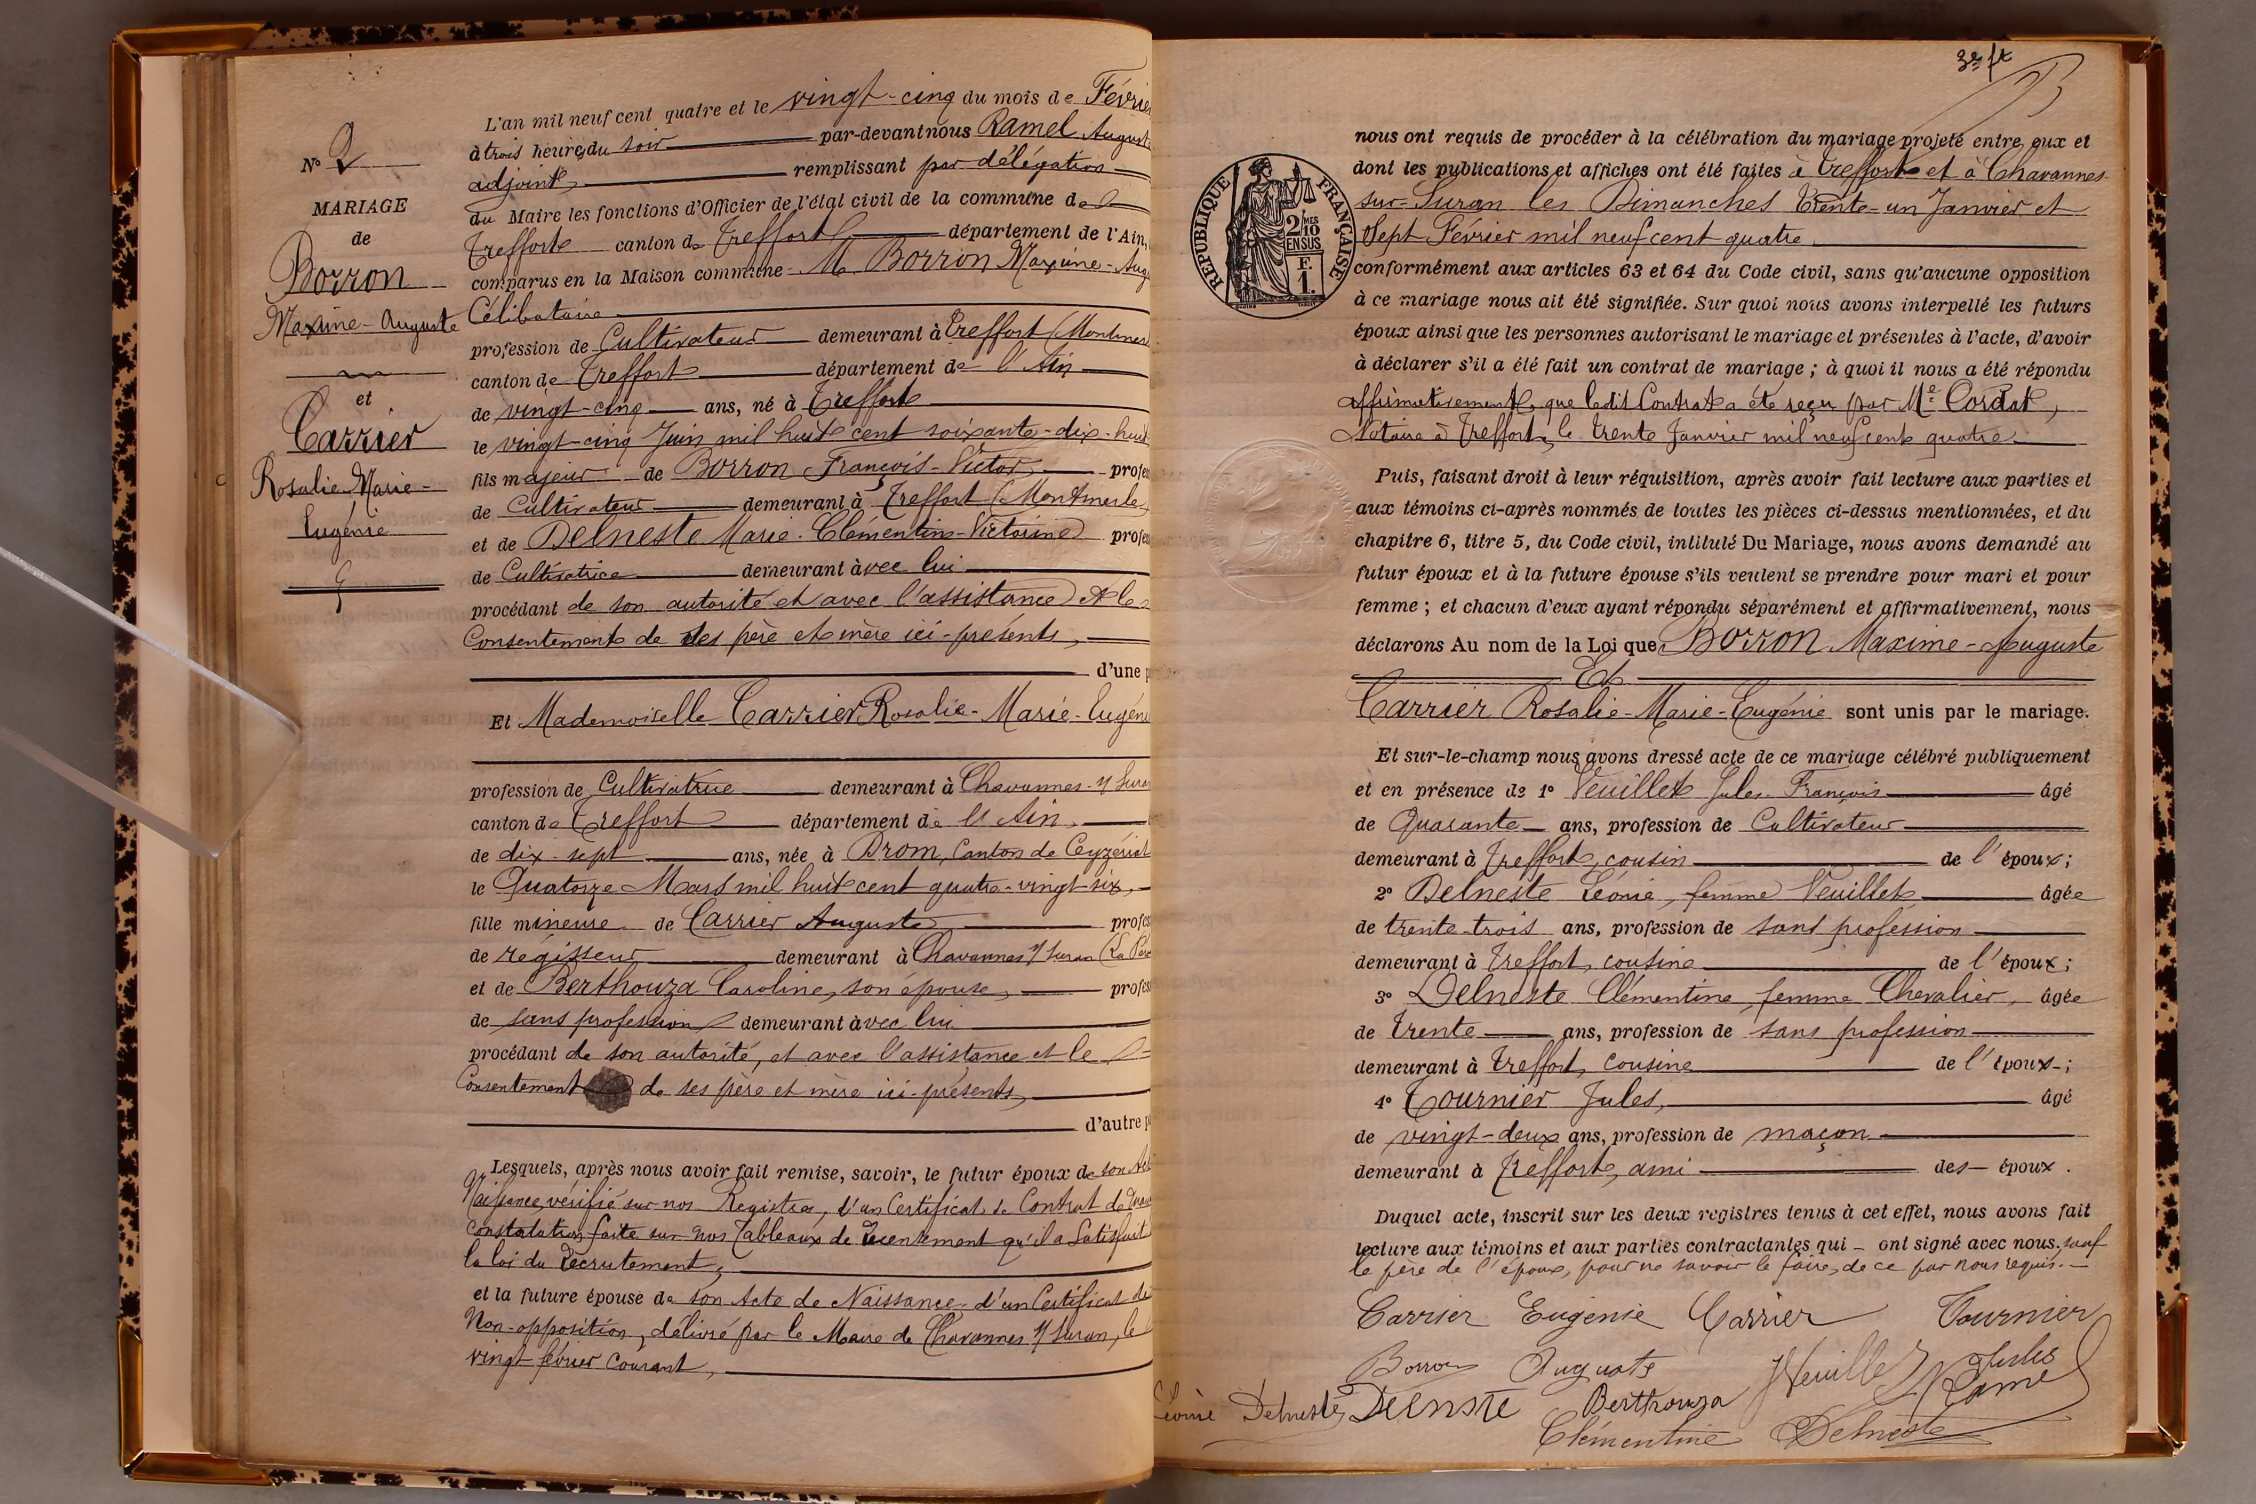 N° 2
MARIAGE
de
Borron
Maxime-Auguste
et
Carrier
Rosalie-Marie-
Eugénie
L'an mil neuf cent quatre et le vingt-cinq du mois de Févrie
à trois heures du soir par-devant nous Ramel August
adjoint, remplissant par délégation
du Maire les fonctions d'Officier de l'état civil de la commune de
Treffort canton de Treffort département de l'Ain,
comparus en la Maison commune M Borron Maxime-Aug
Célibataire
profession de Cultivateur demeurant à Treffort (Montmer
canton de Treffort département de l'Ain
de vingt-cinq ans, né à Treffort
le vingt-cinq Juin mil huit cent soixante-dix-huit
fils majeur de Borron François-Victor, profes
de Cultivateur demeurant à Treffort (Montmerle
et de Delneste Marie-Clémentine-Victorine profes
de Cultivatrice demeurant avec lui
procédant de son autorité et avec l'assistance et le
Consentement de ses père et mère ici-présents,
d'une p
Et Mademoiselle Carrier Rosalie-Marie-Eugéni
profession de Cultivatrice demeurant à Chavannes-s/ Suran
canton de Treffort département de l'Ain,
de dix-sept ans, née à Drom, Canton de Ceyzériat
le Quatorze Mars mil huit cent quatre-vingt-six,
fille mineure de Carrier Auguste profes
de régisseur demeurant à Chavannes s/ Suran (La
et de Berthouza Caroline, son épouse, profes
de sans profession demeurant avec lui
procédant de son autorité, et avec l'assistance et le
Consentement de ses père et mère ici-présents,
d'autre p
Lesquels, après nous avoir fait remise, savoir, le futur époux de son Act
Naissance, vérifié sur nos Registres, d'un Certificat de Contrat de
constatation faite sur nos Tableaux de Recensement qu'il a Satisfait
la loi du Recrutement,
et la future épouse de son Acte de Naissance, d'un Certificat de
Non-opposition, délivré par le Maire de Chavannes s/ Suran, le
vingt février courant,
nous ont requis de procéder à la célébration du mariage projeté entre eux et
dont les publications et affiches ont été faites à Treffort et à Chavannes-
sur-Suran les Dimanches Trente-un Janvier et
Sept Février mil neuf cent quatre
conformément aux articles 63 et 64 du Code civil, sans qu'aucune opposition
à ce mariage nous ait été signifiée. Sur quoi nous avons interpellé les futurs
époux ainsi que les personnes autorisant le mariage et présentes à l'acte, d'avoir
à déclarer s'il a été fait un contrat de mariage ; à quoi il nous a été répondu
affirmativement, que ledit Contrat a été reçu par Me Cordat,
Notaire à Treffort, le trente Janvier mil neuf cent quatre.
RÉPUBLIQUE FRANÇAISE
2/10 MES
EN SUS
F.
1.
Puis, faisant droit à leur réquisition, après avoir fait lecture aux parties et
aux témoins ci-après nommés de toutes les pièces ci-dessus mentionnées, et du
chapitre 6, titre 5, du Code civil, intitulé Du Mariage, nous avons demandé au
futur époux et à la future épouse s'ils veulent se prendre pour mari et pour
femme ; et chacun d'eux ayant répondu séparément et affirmativement, nous
déclarons Au nom de la Loi que Borron Maxime-Auguste
Et
Carrier Rosalie-Marie-Eugénie sont unis par le mariage.
Et sur-le-champ nous avons dressé acte de ce mariage célébré publiquement
et en présence de 1° Veuillet Jules-François âgé
de Quarante ans, profession de Cultivateur
demeurant à Treffort, cousin de l'époux ;
2° Delneste Léonie, femme Veuillet âgée
de trente-trois ans, profession de sans profession
demeurant à Treffort, cousine de l'époux ;
3° Delneste Clémentine, femme Chevalier, âgée
de trente ans, profession de sans profession
demeurant à Treffort, cousine de l'époux ;
4° Tournier Jules, âgé
de vingt-deux ans, profession de maçon
demeurant à Treffort, ami des époux.
Duquel acte, inscrit sur les deux registres tenus à cet effet, nous avons fait
lecture aux témoins et aux parties contractantes qui ont signé avec nous, sauf
le père de l'époux, pour ne savoir le faire, de ce par nous requis.
Carrier Eugénie Carrier Tournier
Borron Auguste JVeuillet Jules
Léonie Delneste Delnste Berthouza Ramel
Clémentine Delneste